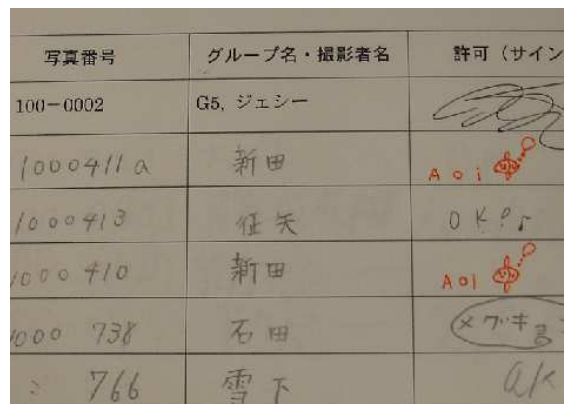 写真番号 グループ名・撮影者名 許可（サイン
100-0002 G5, ジェシー
1000411a 新田 Aoi
1000413 征矢 OK?♪
1000410 新田 AOI
1000 738 石田 メグキ
766 雪下 ak